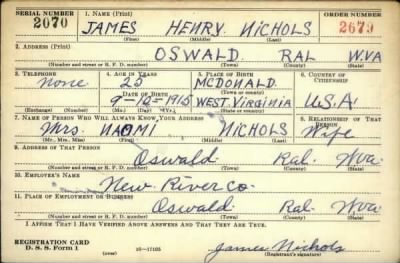 SERIAL NUMBER 1. NAME (Print) ORDER NUMBER
2070 JAMES HENRY NICHOLS 2679
(First) (Middle) (Last)
2. ADDRESS (Print)
OSWALD RAL W.VA
(Number and street or R. F. D. number) (Town) (County) (State)
3. TELEPHONE 4. AGE IN YEARS 5. PLACE OF BIRTH 6. COUNTRY OF CITIZENSHIP
None 25 MCDONALD
DATE OF BIRTH (Town or county)
9-10-1915 WEST VIRGINIA U.S.A.
(Exchange) (Number) (Mo.) (Day) (Yr.) (State or country)
7. NAME OF PERSON WHO WILL ALWAYS KNOW YOUR ADDRESS 8. RELATIONSHIP OF THAT PERSON
Mrs. NAOMI NICHOLS Wife
(Mr., Mrs., Miss) (First) (Middle) (Last)
9. ADDRESS OF THAT PERSON
Oswald Ral. Wva.
(Number and street or R. F. D. number) (Town) (County) (State)
10. EMPLOYER'S NAME
New River Co.
11. PLACE OF EMPLOYMENT OR BUSINESS
Oswald Ral. Wva
(Number and street or R. F. D. number) (Town) (County) (State)
I AFFIRM THAT I HAVE VERIFIED ABOVE ANSWERS AND THAT THEY ARE TRUE.
REGISTRATION CARD
D. S. S. Form 1 (over) 16-17105 James Nichols
(Registrant's signature)